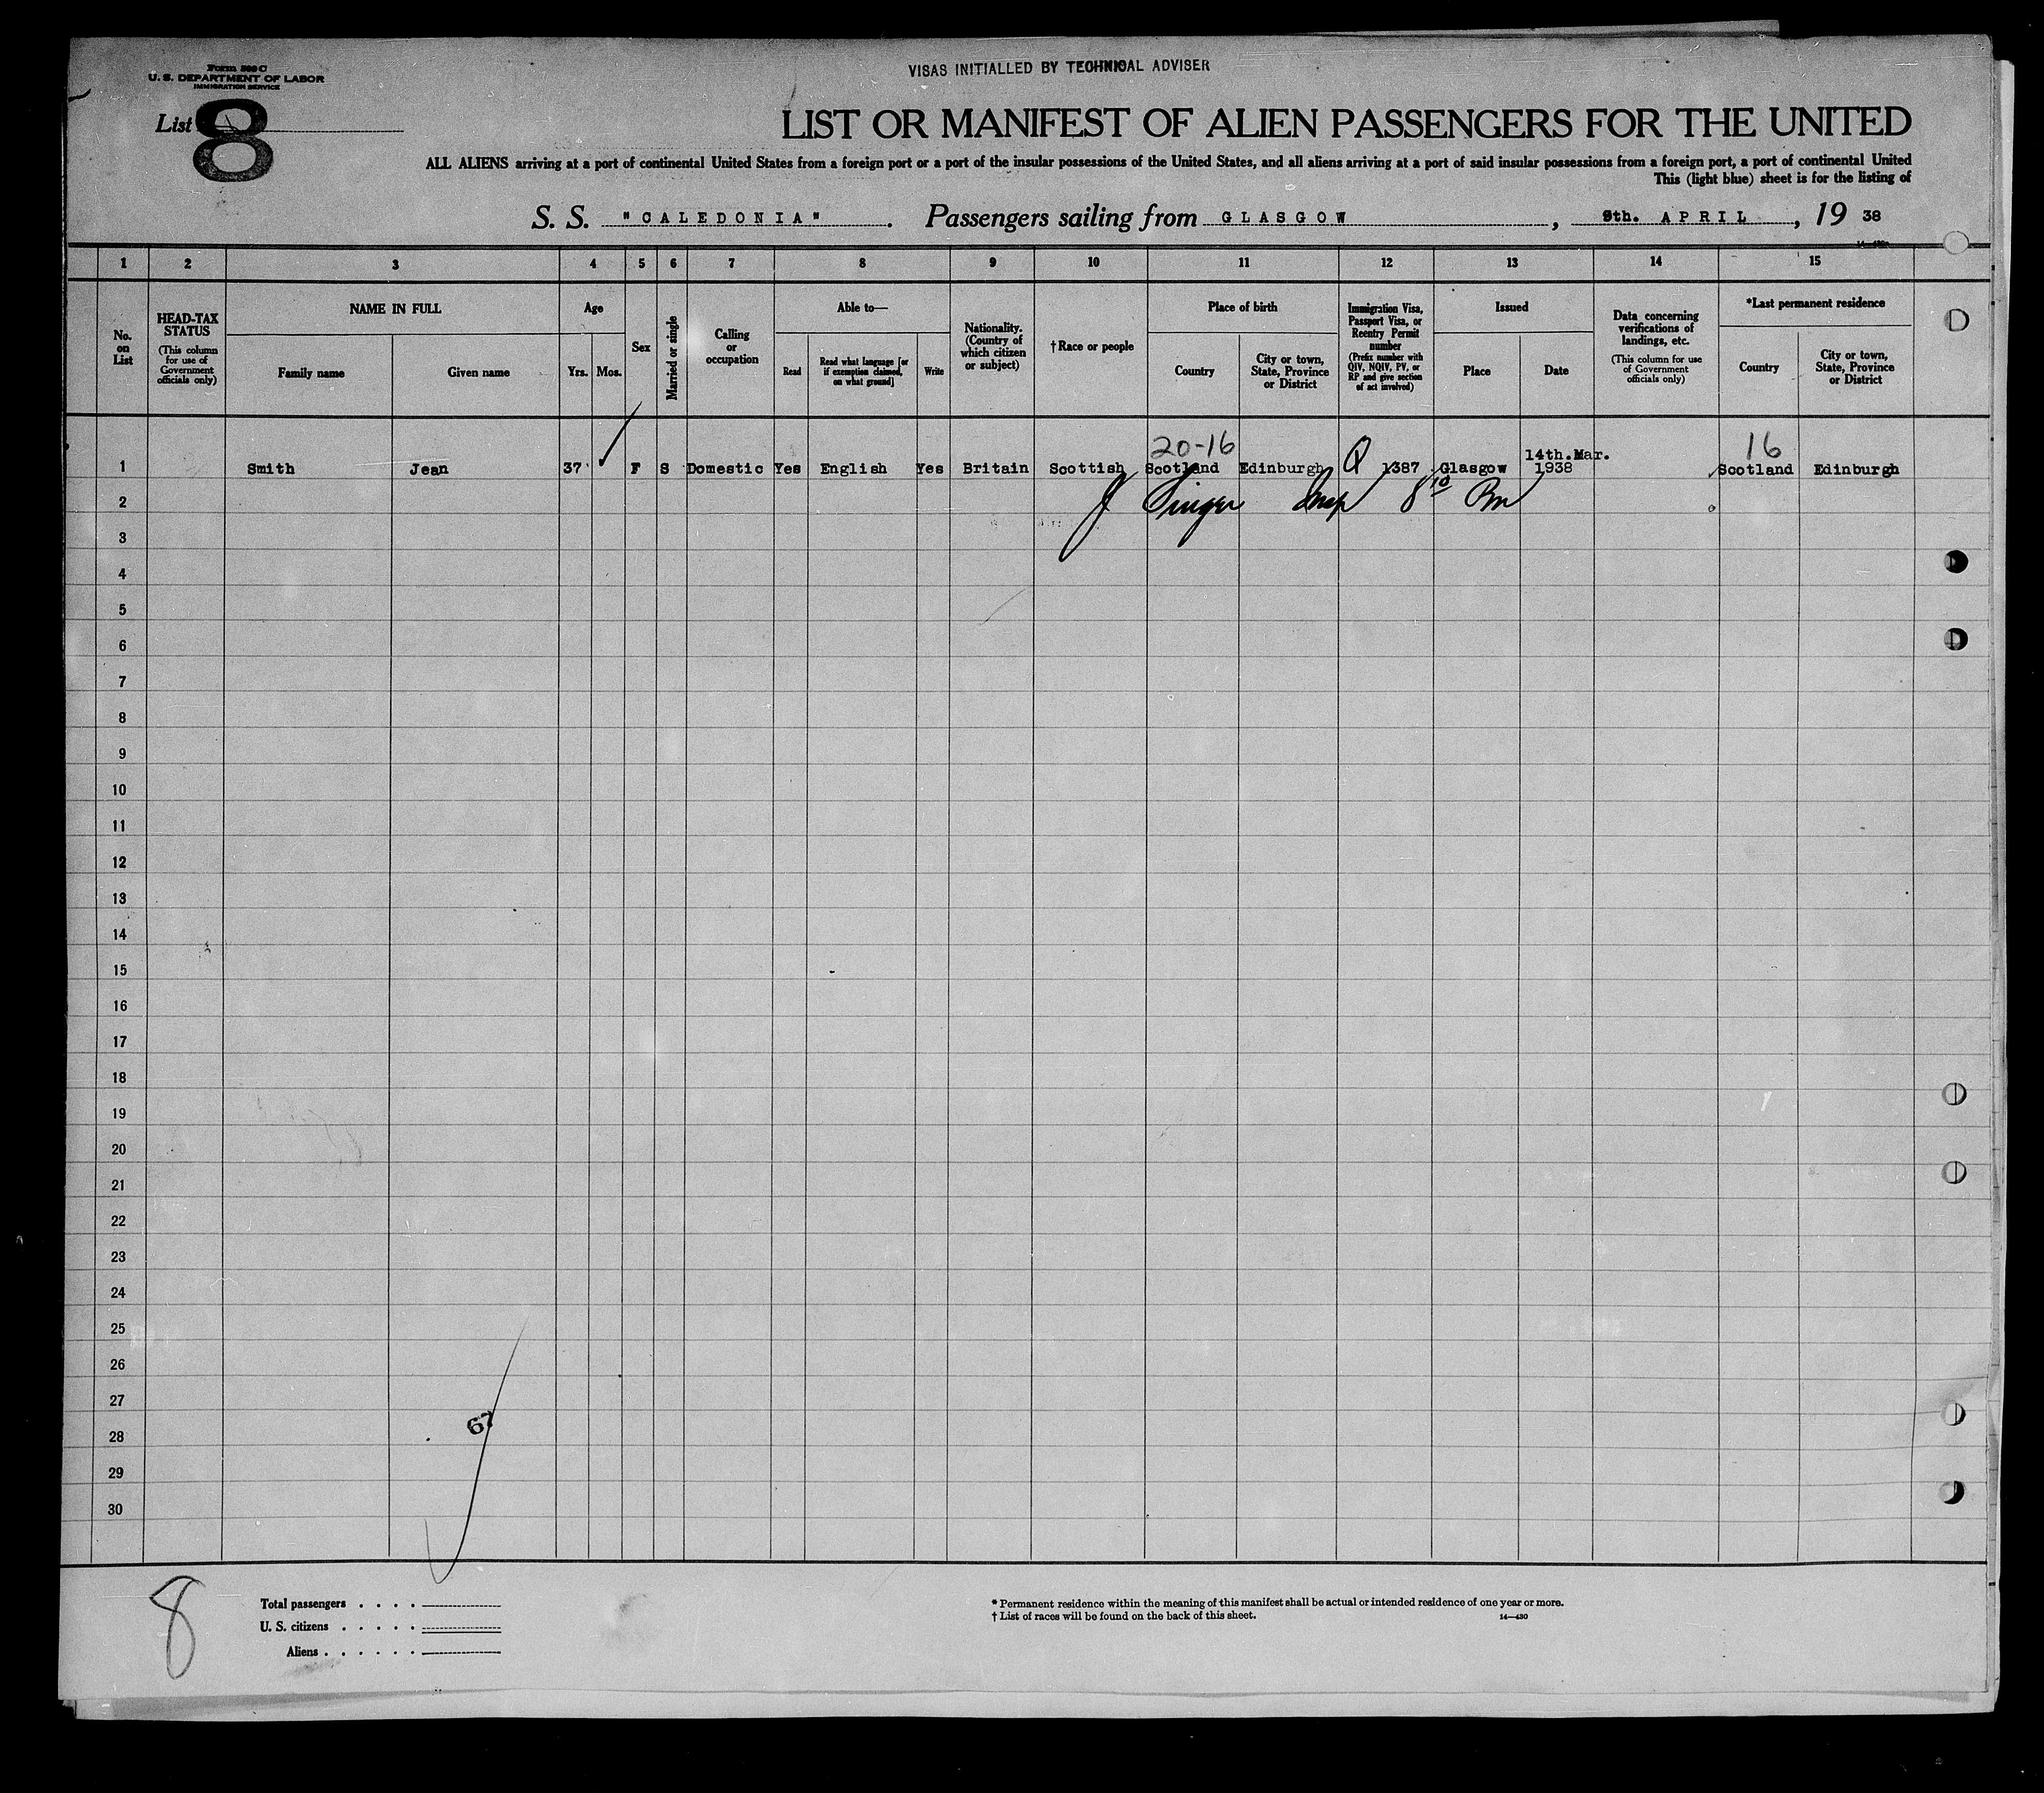 Form 500 C
U. S. DEPARTMENT OF LABOR
IMMIGRATION SERVICE
VISAS INITIALLED BY TECHNICAL ADVISER
List 8
LIST OR MANIFEST OF ALIEN PASSENGERS FOR THE UNITED
ALL ALIENS arriving at a port of continental United States from a foreign port or a port of the insular possessions of the United States, and all aliens arriving at a port of said insular possessions from a foreign port, a port of continental United
This (light blue) sheet is for the listing of
S. S. "CALEDONIA". Passengers sailing from GLASGOW, 9th. APRIL, 19 38
14—430
1 2 3 4 5 6 7 8 9 10 11 12 13 14 15
No. on List
HEAD-TAX STATUS
(This column for use of Government officials only)
NAME IN FULL
Family name
Given name
Age
Yrs. Mos.
Sex
Married or single
Calling or occupation
Able to—
Read
Read what language [or if exemption claimed, on what ground]
Write
Nationality. (Country of which citizen or subject)
†Race or people
Place of birth
Country
City or town, State, Province or District
Immigration Visa, Passport Visa, or Reentry Permit number
(Prefix number with QIV, NQIV, PV, or RP and give section of act involved)
Issued
Place
Date
Data concerning verifications of landings, etc.
(This column for use of Government officials only)
*Last permanent residence
Country
City or town, State, Province or District
20-16
16
1 Smith Jean 37 F S Domestic Yes English Yes Britain Scottish Scotland Edinburgh Q 1387 Glasgow 14th.Mar. 1938 Scotland Edinburgh
2 J Singer Insp 8 10 Pm
3
4
5
6
7
8
9
10
11
12
13
14
15
16
17
18
19
20
21
22
23
24
25
26
27
67
28
29
30
8
Total passengers
U. S. citizens
Aliens
* Permanent residence within the meaning of this manifest shall be actual or intended residence of one year or more.
† List of races will be found on the back of this sheet.
14—430